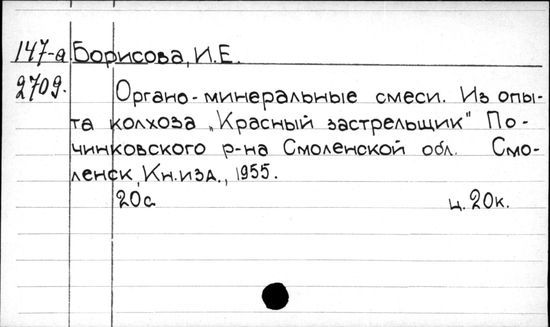 147-а Борисова, И.Е.
2709. Органо-минеральные смеси. Из опы-
та колхоза „Красный застрельщик" По-
чинковского р-на Смоленской обл. Смо-
ленск, Кн.изд., 1955.
20с ц. 20к.